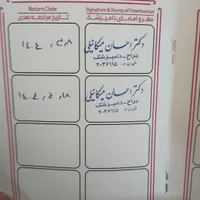 Return Date
تاریخ مراجعه بعدی
Signature & Stamp of Veterinarian
مهر و امضای دامپزشک
۱۴۰۴٫۳٫۸
دکتر احسان میکائیلی
جراح - دامپزشک
۲۰۳۶۱۱۵
۱۴۰۴٫۵٫۱۸
دکتر احسان میکائیلی
جراح - دامپزشک
۲۰۳۶۱۱۵